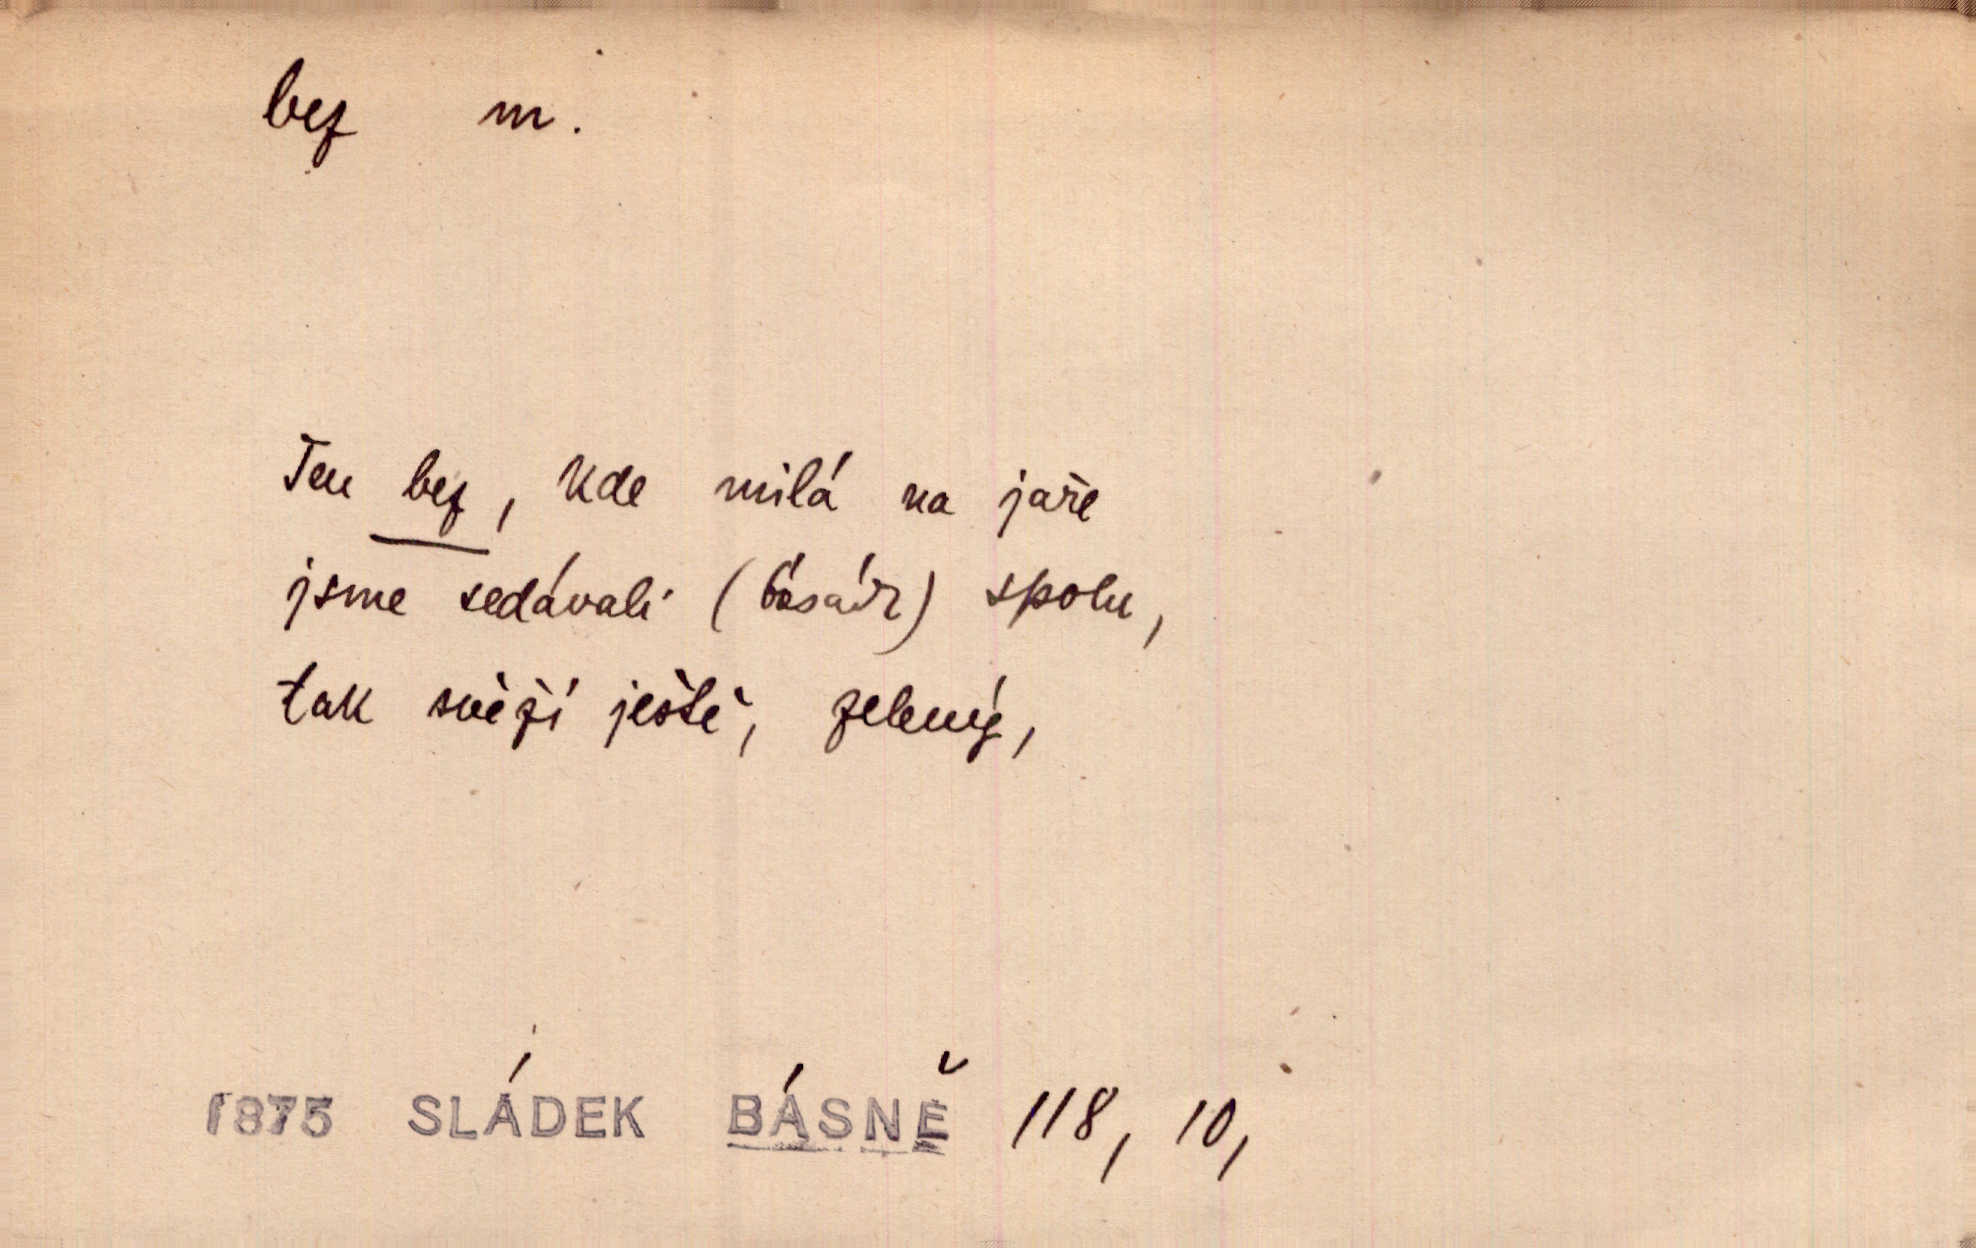 bez m.
Ten bez, kde milá na jaře
jsme sedávali (básníř) spolu,
tak svěží ještě, zelený,
1875 SLÁDEK BÁSNĚ 118, 10,